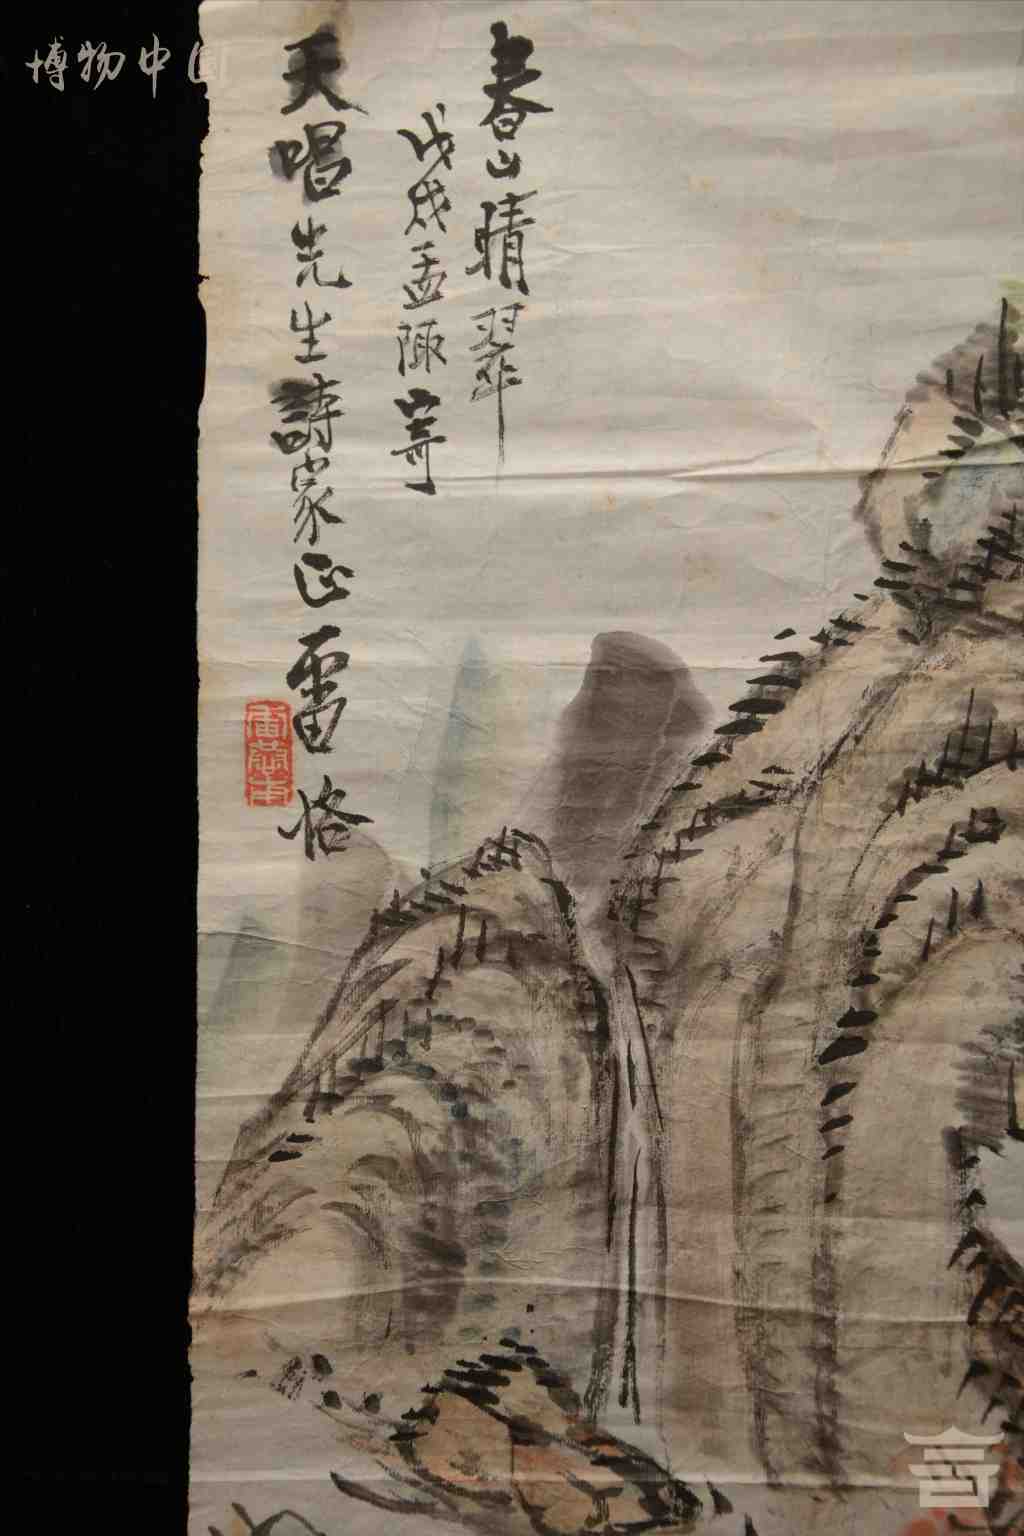 春山晴翠
戊戌孟陬寄
天唱先生詩家正雷恪
博物中国